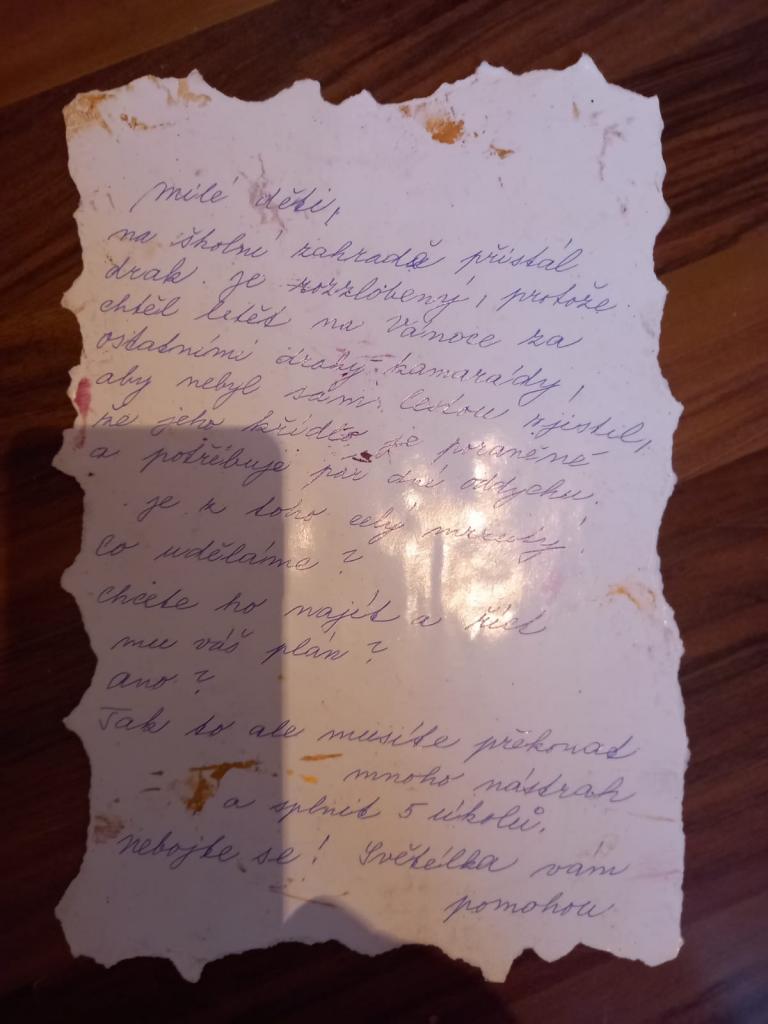 Milé děti,
na školní zahradě přistál
drak. je rozzlobený, protože
chtěl letět na Vánoce za
ostatními draky kamarády,
aby nebyl sám. zjistil,
že jeho křídlo je poraněné
a potřebuje pár dní oddychu.
je z toho celý mrzutý!
Co uděláme?
chcete ho najít a říct
mu váš plán?
ano?
Tak to ale musíte překonat
mnoho nástrah
a splnit 5 úkolů.
nebojte se! Světélka vám
pomohou